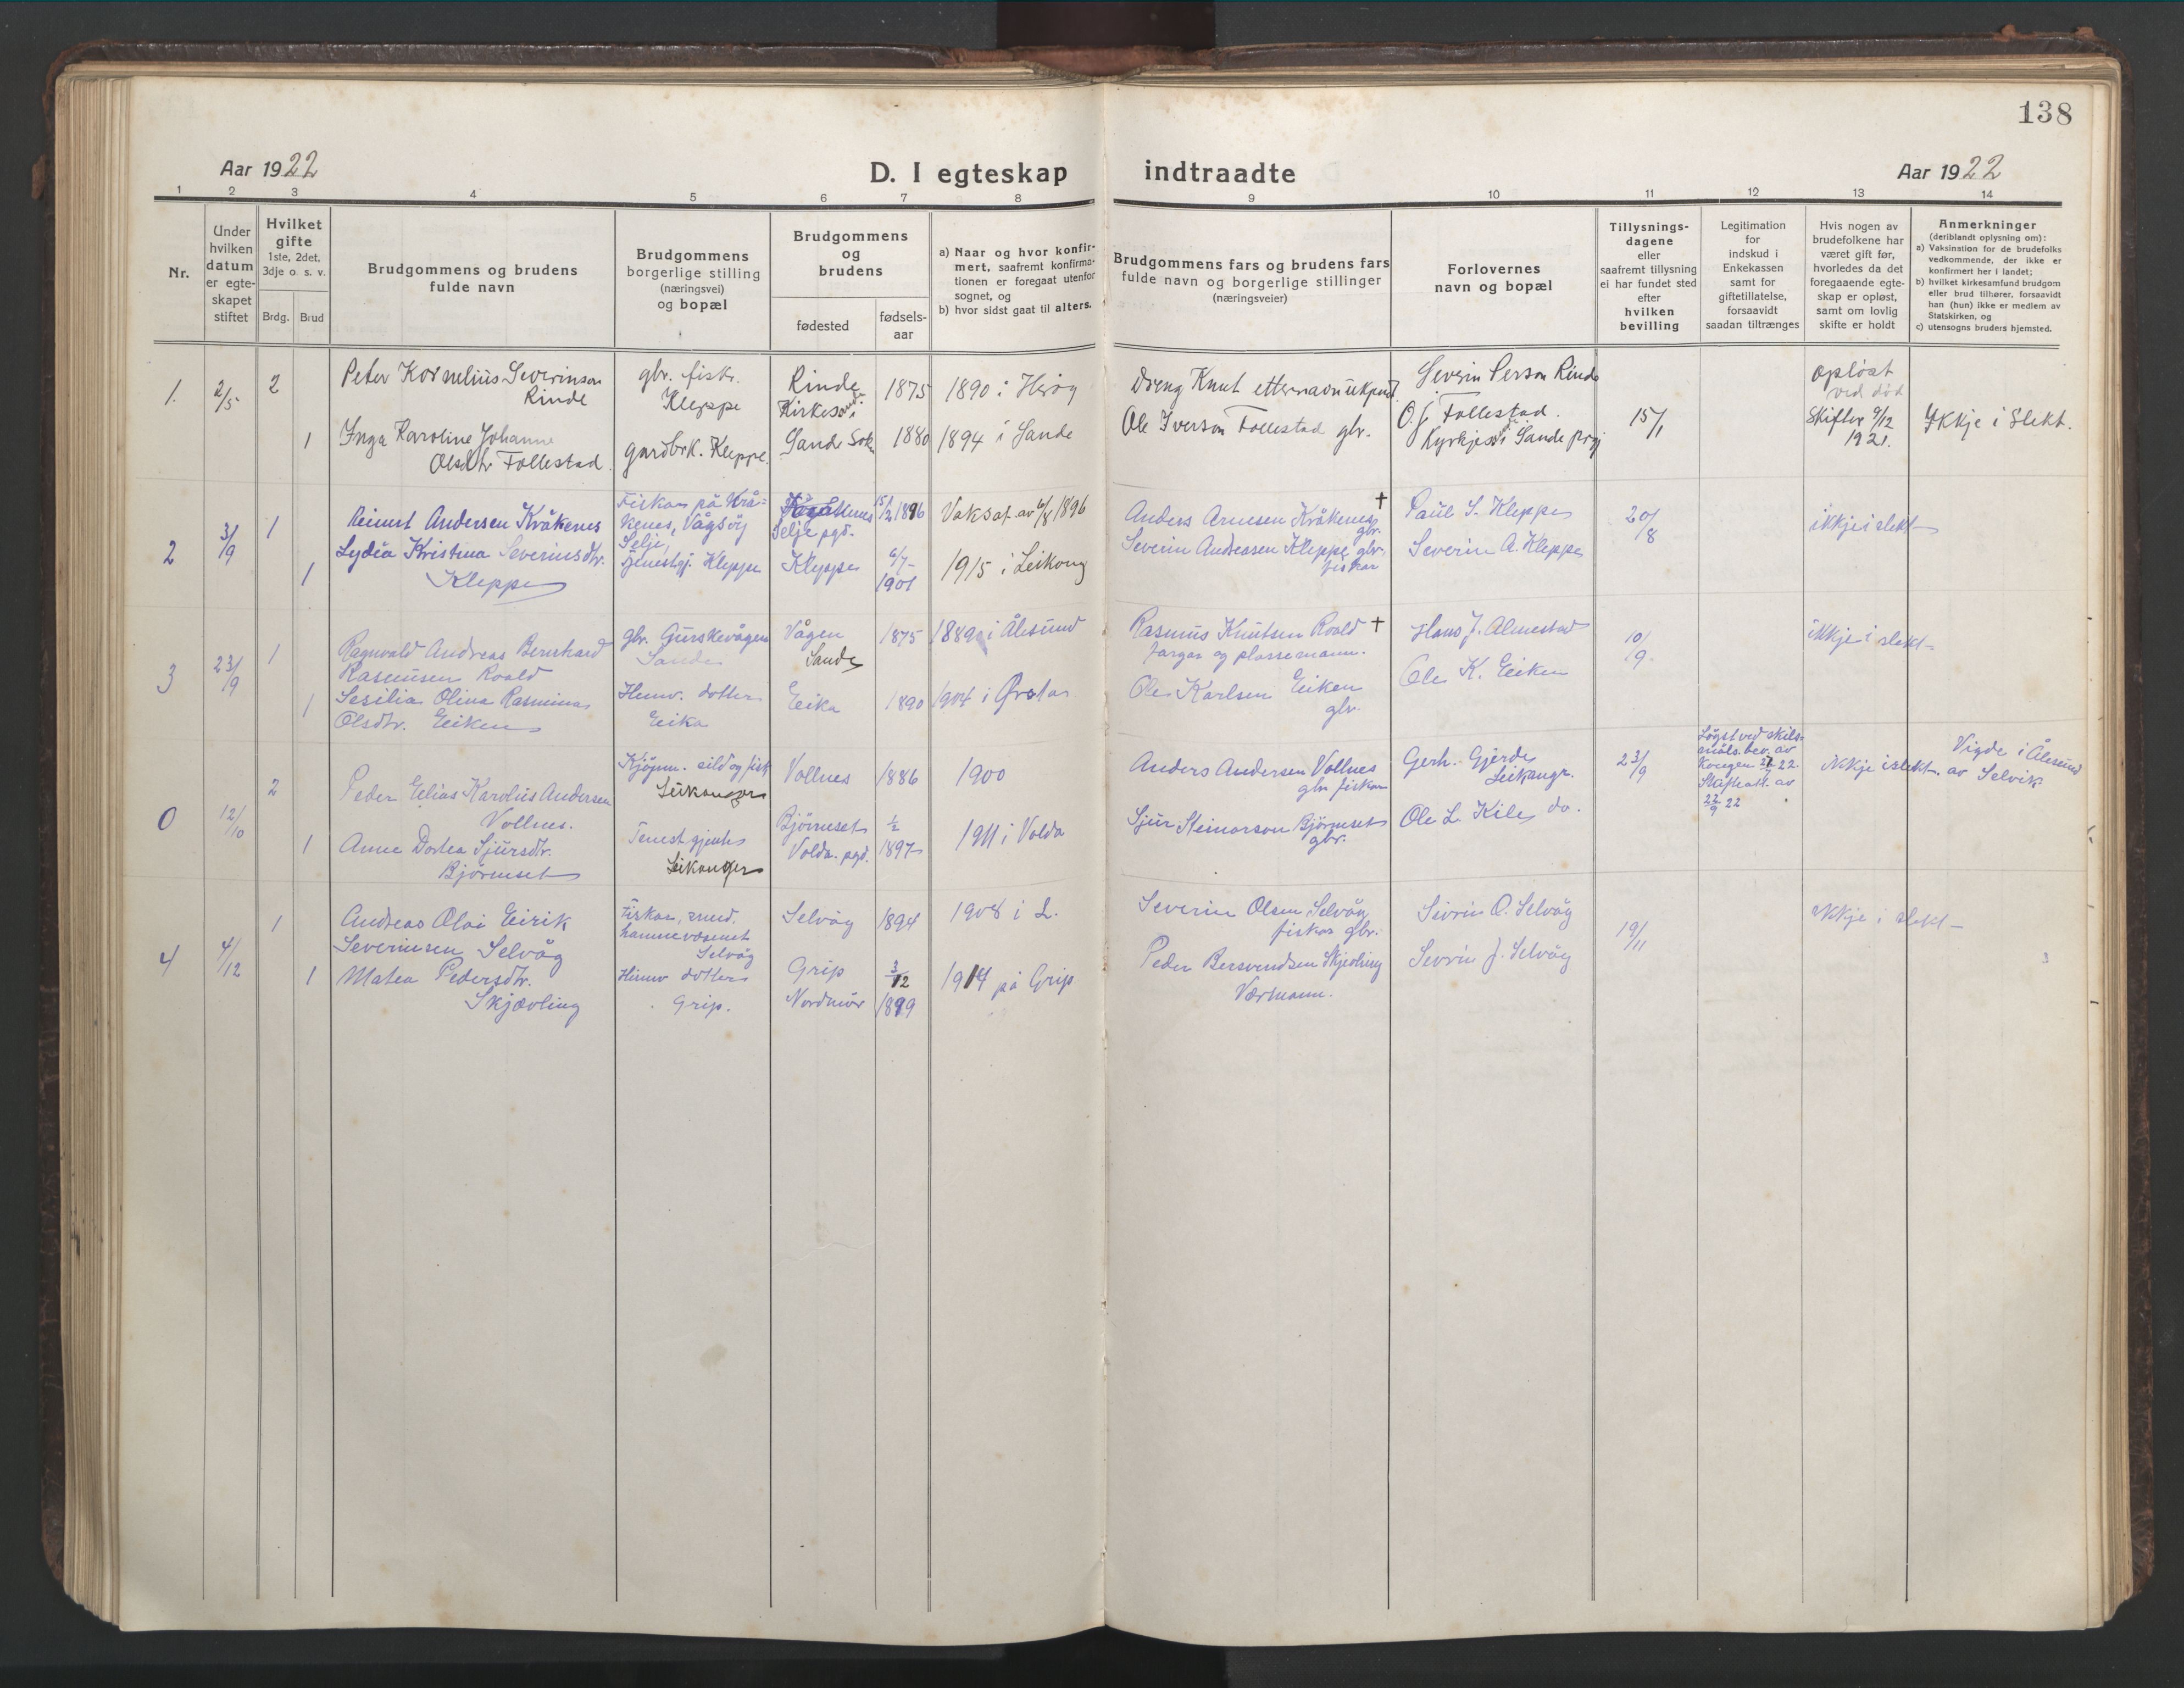 138
Aar 1922
D. I egteskap indtraadte
Aar 1922
1 2 3 4 5 6 7 8 9 10 11 12 13 14
Nr.
Under hvilken datum er egte-skapet stiftet
Hvilket gifte 1ste, 2det, 3dje o. s. v.
Brdg. Brud
Brudgommens og brudens fulde navn
Brudgommens borgerlige stilling (næringsvei) og bopæl
Brudgommens og brudens
fødested
fødsels-aar
a) Naar og hvor konfir-mert, saafremt konfirma-tionen er foregaat utenfor sognet, og
b) hvor sidst gaat til alters.
Brudgommens fars og brudens fars fulde navn og borgerlige stillinger (næringsveier)
Forlovernes navn og bopæl
Tillysnings-dagene eller saafremt tillysning ei har fundet sted efter hvilken bevilling
Legitimation for indskud i Enkekassen samt for giftetillatelse, forsaavidt saadan tiltrænges
Hvis nogen av brudefolkene har været gift før, hvorledes da det foregaaende egte-skap er opløst, samt om lovlig skifte er holdt
Anmerkninger (deriblandt oplysning om):
a) Vaksination for de brudefolks vedkommende, der ikke er konfirmert her i landet;
b) hvilket kirkesamfund brudgom eller brud tilhører, forsaavidt han (hun) ikke er medlem av Statskirken, og
c) utensogns bruders hjemsted.
1. 2/5 2 Peter Kornelius Severinson Rinde
gbr. fisk. Kleppe
Rinde
1875
1890 i Herøy
Dreng Knut etternavn ukjend
Severin Person Rinde
15/1
opløst ved død
Skifte 9/12 1921.
Ikkje i Slekt.
1 Inga Karoline Johanne Olsdtr Follestad
gardbrk. Kleppe.
Sande Sokn
1880
1894 i Sande
Ole Iverson Follestad gbr.
O. J. Follestad.
2 3/9 1 Reinert Andersen Kråkenes
Fiskar på Krå-kenes, Vågsöy Selje,
Selje pgd.
15/2 1896
Vaksat. av 6/8 1896
Anders Arnesen Kråkenes gbr. †
Paul S. Kleppe
20/8
ikkje i slekt
1 Lydia Kristina Severinsdtr. Kleppe
tjenestgj. Kleppe
Kleppe
6/7 1901
1915 i Leikong
Severin Andressen Kleppe gbr. fiskar
Severin A. Kleppe
3 23/9 1 Ragnvald Andreas Bernhard Rasmusen Roald
gbr. Gurskevågen Sande
Vågen Sande
1875
1889 i Ålesund
Rasmus Knutsen Roald † fargar og plassemann.
Hans J. Almestad
10/9
ikkje i slekt
1 Sesilia Olina Rasmina Olsdtr. Eiken
Heimv. dotter Eika
Eika
1890
1904 i Ørsta
Ole Karlsen Eiken gbr.
Ole K. Eiken
0 12/10 2 Peder Elias Karolus Andersen Vollnes.
Kjöpm. sild og fisk Leikanger
Vollnes
1886
1900
Anders Andersen Vollnes gbr fiskar
Gerh. Gjerde Leikangr.
23/9
Løyst ved skils-måls. bev. av Kongen
Skifteatt. av 22/9 22
ikkje i slekt.
Vigde i Ålesund av Selvik
1 Anne Dortea Sjursdtr. Björneset
Tenestgjente Leikanger
Björneset Volda pgd.
1/2 1897
1911 i Volda
Sjur Steinarson Björneset gbr.
Ole L. Kile do.
4 4/12 1 Andreas Olai Eirik Severinsen Selvåg
Fiskar, hamnevæsenet Selvåg
Selvåg
1894
1908 i L.
Severin Olsen Selvåg fiskar gbr.
Sevrin O. Selvåg
19/11
ikkje i slekt
1 Matea Pedersdtr. Skjævling
Heimv dotter Grip.
Grip Nordmör
3/12 1899
1914 på Grip
Peder Bersvendsen Skjevling Værmann.
Sevrin J. Selvåg